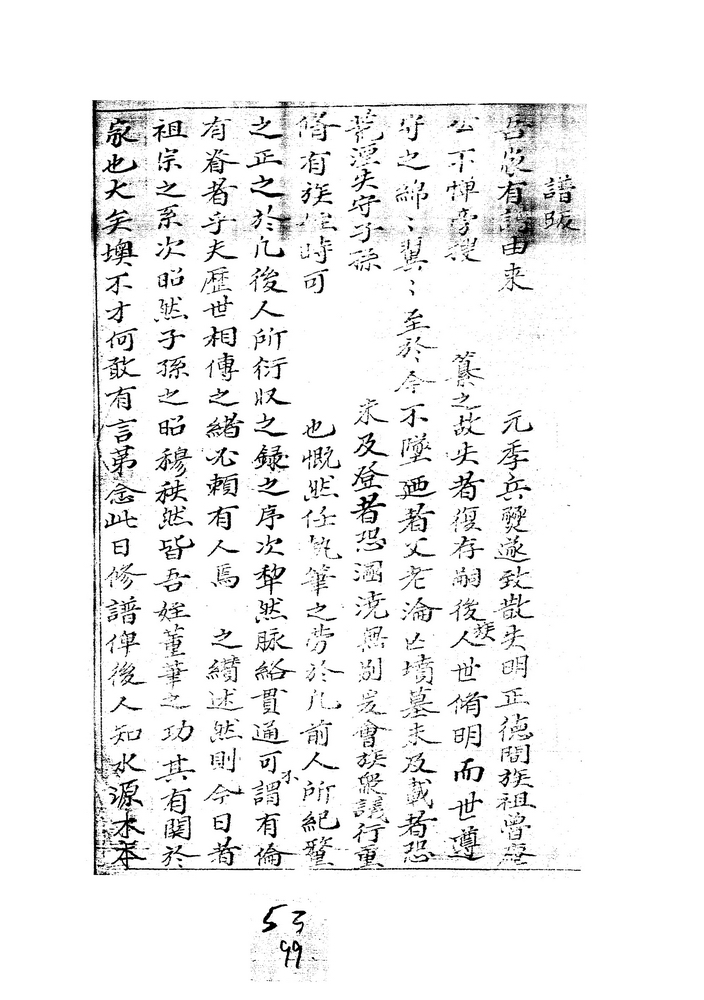 譜跋
吾家有譜由来 元季兵燹遂致散失明正德間族祖曾唐
公不憚旁搜 纂之故失者復存嗣後人族世脩明而世遵
守之綿〻翼〻至於今不墜廼者父老淪亡墳墓未及載者恐
荒湮失守子孫 未及登者恐溷淆無別爰會族衆議行重
脩有族姪時可 也慨然任執筆之勞於凡前人所紀釐
之正之於凡後人所衍収之録之序次犂然脉絡貫通可謂有倫
有脊者乎夫歴世相傳之緒必頼有人焉 之纉述然則今日者
祖宗之系次昭然子孫之昭穆秩然皆吾姪董筆之功其有関於
家也大矣墺不才何敢有言苐念此日修譜俾後人知水源木本
53
99